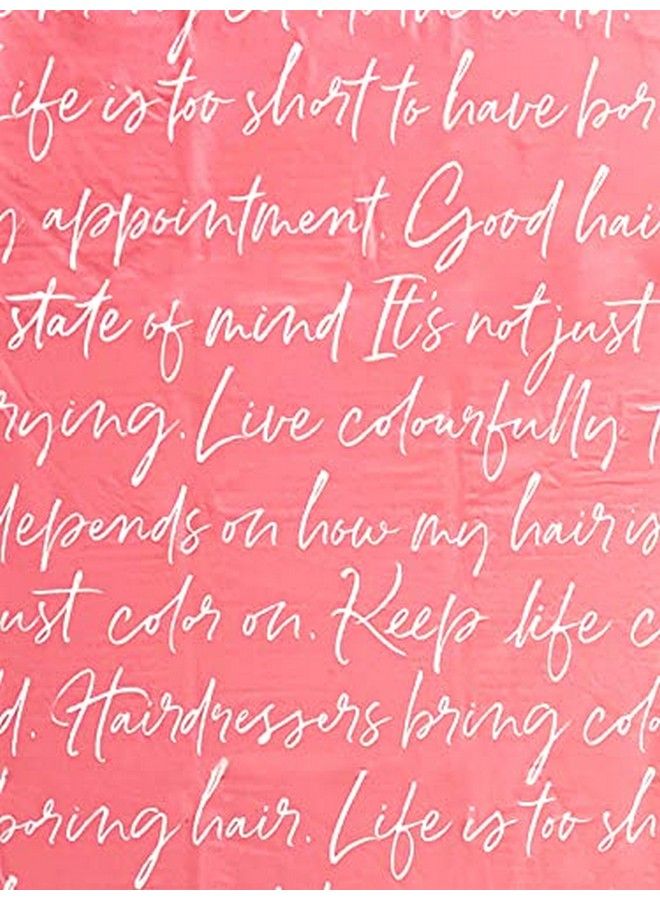 Life is too short to have bor
y appointment. Good hai
state of mind It's not just
rying. Live colourfully T
depends on how my hair is
ust color on. Keep life c
d. Hairdressers bring colo
boring hair. Life is too sh